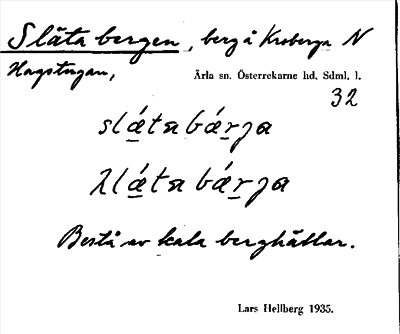 Släta bergen, berg å Kroberga N
Hagstugan,
Ärla sn. Österrekarne hd. Sdml. l.
32
slǽta bǽrga
λlǽta bǽrga
Bestå av kala berghällar.
Lars Hellberg 1935.